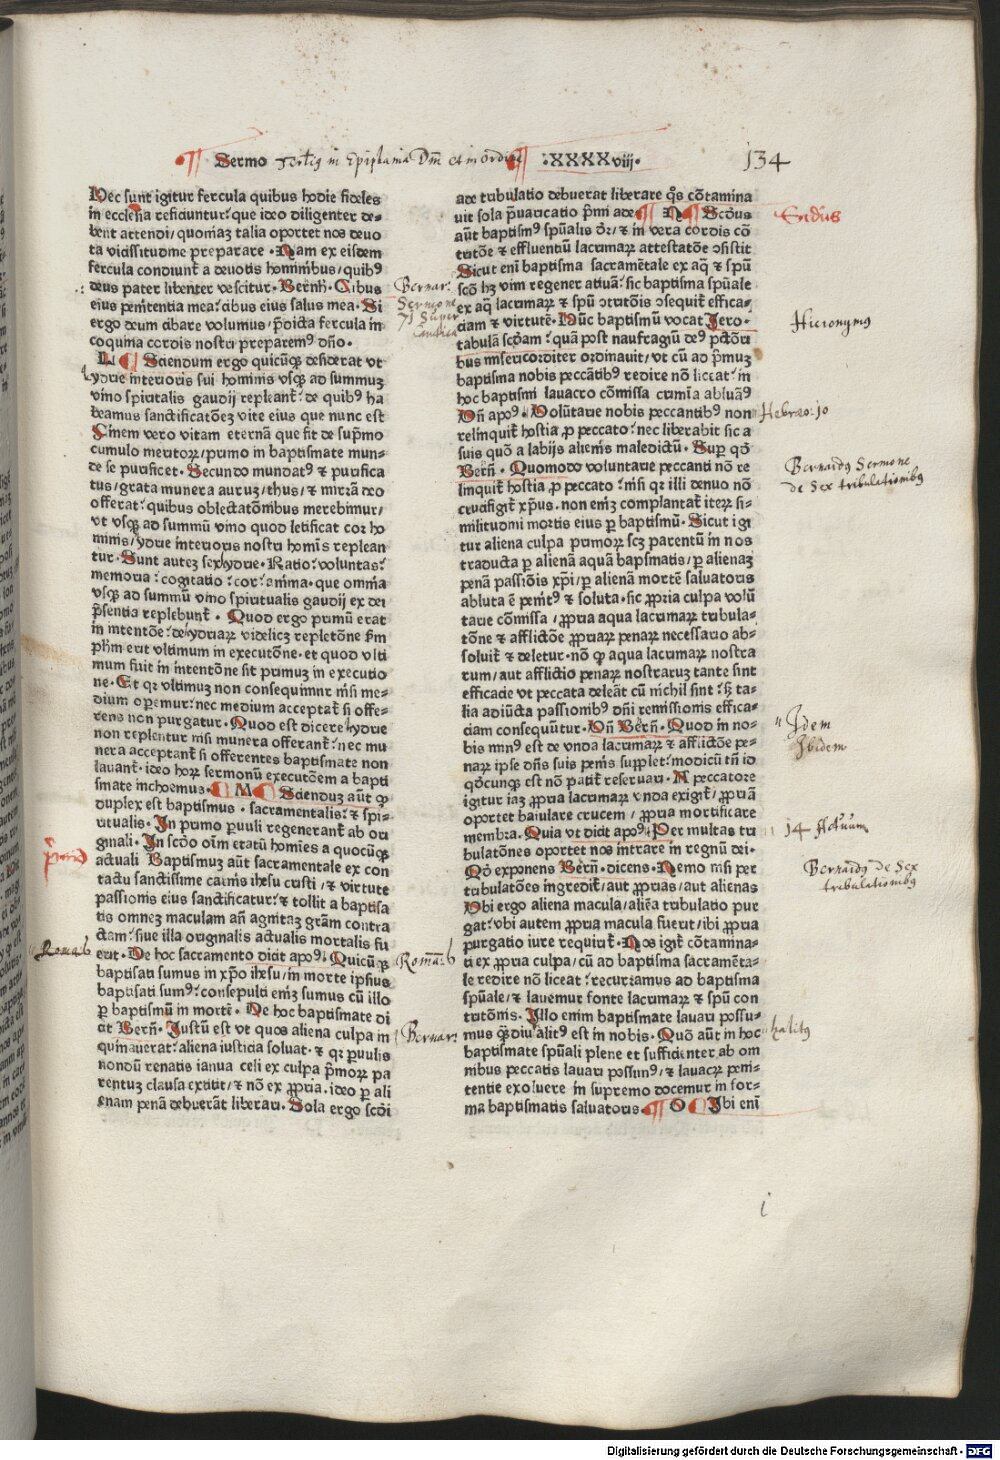 Sermo Tertius in Epiphania Dñi et in ordine .XXXXviij. 134
Hec sunt igitur fercula quibus hodie fideles
in ecclesia reficiuntur: que ideo diligenter de-
bent attendi/ quoniaz talia oportet nos deuo
ta vicissitudine preparare. Nam ex eisdem
fercula condiunt̃ a deuotis hominibus/ quibꝰ
deus pater libenter vescitur. Bernh̃. Cibus
eius penitentia mea: cibus eius salus mea. Si
ergo deum cibare volumus/ p̃dicta fercula in
coquina cordis nostri preparem̃ dño.
L ¶ Sciendum ergo quicũqꝫ desiderat vt
ydrie interioris sui hominis vsqꝫ ad summuz
vino spiritalis gaudij repleant̃: de quibꝰ ha
beamus sanctificatõez vite eius que nunc est
Finem vero vitam eternã que fit de sup̃mo
cumulo meritoꝝ/ primo in baptismate mun-
de se purificet. Secundo mundatꝰ & purifica
tus/ grata munera auruz/ thus/ & mirrã deo
offerat: quibus oblectatõnibus merebimur/
vt vsqꝫ ad summũ vino quod letificat cor ho
minis/ ydrie interioris nostri homĩs replean
tur. Sunt autez sex hydrie. Ratio: voluntas:
memoria: cogitatio: cor: anima. que omnia
vsqꝫ ad summũ vino spiritualis gaudij ex dei
p̃sentia replebunt̃. Quod ergo primũ erat
in intentõe: de ydriaꝝ videlicꝫ repletõne p̃m
ph̃m erit vltimum in executõne. et quod vlti
mum fuit in intentõne sit primuz in executio
ne. Et qꝛ vltimuz non consequimur nisi me-
dium operemur: nec medium acceptat̃ si offe-
rens non purgatur. Quod est dicere hydrie
non replentur nisi munera offerant̃: nec mu
nera acceptant̃ si offerentes baptismate non
lauant̃. ideo hoꝝ sermonũ executõem a bapti
smate inchoemus. ¶ M ¶ Scienduz aũt qꝙ
duplex est baptismus. sacramentalis: & spi-
ritualis. In primo paruuli regenerant̃ ab ori
ginali. In scdo oĩm etatũ homĩes a quocũqꝫ
actuali Baptismuz aũt sacramentale ex con
tactu sanctissime carnis ihesu cristi/ & virtute
passionis eius sanctificatur: & tollit a baptisa
tis omnez maculam añ agnitaz grãm contra
ctam: siue illa originalis actualis mortalis fu
erit. De hoc sacramento dicit apoꝰ. Quicũqꝫ
baptisati sumus in xp̃o ihesu/ in morte ipsius
baptisati sumꝰ: consepulti eniz sumus cũ illo
per baptismũ in mortẽ. De hoc baptismate di
cit Bern̄. Justũ est vt quos aliena culpa in
quinauerat: aliena iusticia soluat. & qꝛ paruulis
nondũ renatis ianua celi ex culpa p̃moꝝ pa
rentuz clausa extitit/ & nõ ex propria. ideo per ali
enam penã debuerãt liberari. Sola ergo scdi
Bernar:
Sermone
71 Super
Cantica
primo
Roma: 6
Romã: 6
Bernar:
ade tribulatio debuerat liberare q̃s cõtamina
uit sola p̃uaricatio p̃mi ade ¶ N ¶ Scdus
aũt baptismꝰ spũalis dr̃/ & in vera cordis cõ
tritõe & effluentiũ lacrimaꝝ attestatõe ↄsistit
Sicut eni baptisma sacramẽtale ex aq̃ & spũ
scõ hꝫ vim regeneratiuã: sic baptisma spũale
ex aq̃ lacrimaꝝ & spũ ↄtritõis ↄsequit̃ effica-
ciam & virtutẽ. Hũc baptismũ vocat Jero.
tabulã scdam: quã post naufragiũ deꝰ pctõri
bus misericorditer ordinauit/ vt cũ ad p̃muz
baptisma nobis peccãtibꝰ redire nõ liceat: in
hoc baptismi lauacro cõmissa crimina abluãꝰ
Vñ apoꝰ. Volũtarie nobis peccantibꝰ non
relinquit̃ hostia pro peccato: nec liberabit sic a
suis quõ a labijs aliẽnis maledictũ. Super qõ
Bern̄. Quomodo voluntarie peccanti nõ re
linquit̃ hostia pro peccato: nisi qꝛ illi denuo nõ
crucifigit̃ xp̃us. non eniz complantat̃ iteꝝ si-
militudini mortis eius per baptismũ. Sicut igi
tur aliena culpa primoꝝ scꝫ parentũ in nos
traducta per alienã aquã bapsmatis/ per alienaz
penã passiõis xp̃i/ per alienã mortẽ saluatoris
abluta ẽ penitꝰ & soluta. sic propria culpa volũ
tarie cõmissa/ propria aqua lacrimaꝝ tribula-
tõne & afflictõe propriaꝝ penaꝝ necessario ab-
soluit̃ & deletur. nõ qꝙ aqua lacrimaꝝ nostra
rum/ aut afflictio penaꝝ nostraruz tante sint
efficacie vt peccata deleãt cũ nichil sint: sꝫ ta-
lia adiũcta passionibꝰ dñi remissionis effica-
ciam consequũtur. Vñ Bern̄. Quod in no-
bis minꝰ est de vnda lacrimaꝝ & afflictõe pe-
naꝝ ipse dñs suis penis supplet: modicũ tñ id
qõcunqꝫ est nõ patit̃ reseruari. A peccatore
igitur iaz propria lacrimaꝝ vnda exigit̃/ propriã
oportet baiulare crucem/ propria mortificare
membra. Quia vt dicit apoꝰ: Per multas tri
bulatõnes oportet nos intrare in regnũ dei.
Qõ exponens Bern̄. dicens. Nemo nisi per
tribulatões ingredit̃/ aut proprias/ aut alienas
Ubi ergo aliena macula/ aliẽa tribulatio pur
gat: vbi autem propria macula fuerit/ ibi propria
purgatio iure requirit̃. Nos igit̃ cõtamina-
ti ex propria culpa/ cũ ad baptisma sacramẽta-
le redire nõ liceat: recurramus ad baptisma
spũale/ & lauemur fonte lacrimaꝝ & spũ con
tritõnis. Illo enim baptismate lauari possu-
mus q̃ꝫdiu alitꝰ est in nobis. Quõ aũt in hoc
baptismate spũali plene et sufficienter ab om
nibus peccatis lauari possimꝰ/ & lauacꝝ peni-
tentie exoluere in supremo docemur in for-
ma baptismatis saluatoris. ¶ O ¶ Ibi eni
Scdus
Hieronymꝰ
Hebreo: 10
Bernardꝰ Sermone
de Sex tribulationibꝰ
Idem
Ibidem
14 Actuum
Bernardꝰ de Sex
tribulationibꝰ
halitꝰ
i
Digitalisierung gefördert durch die Deutsche Forschungsgemeinschaft - DFG